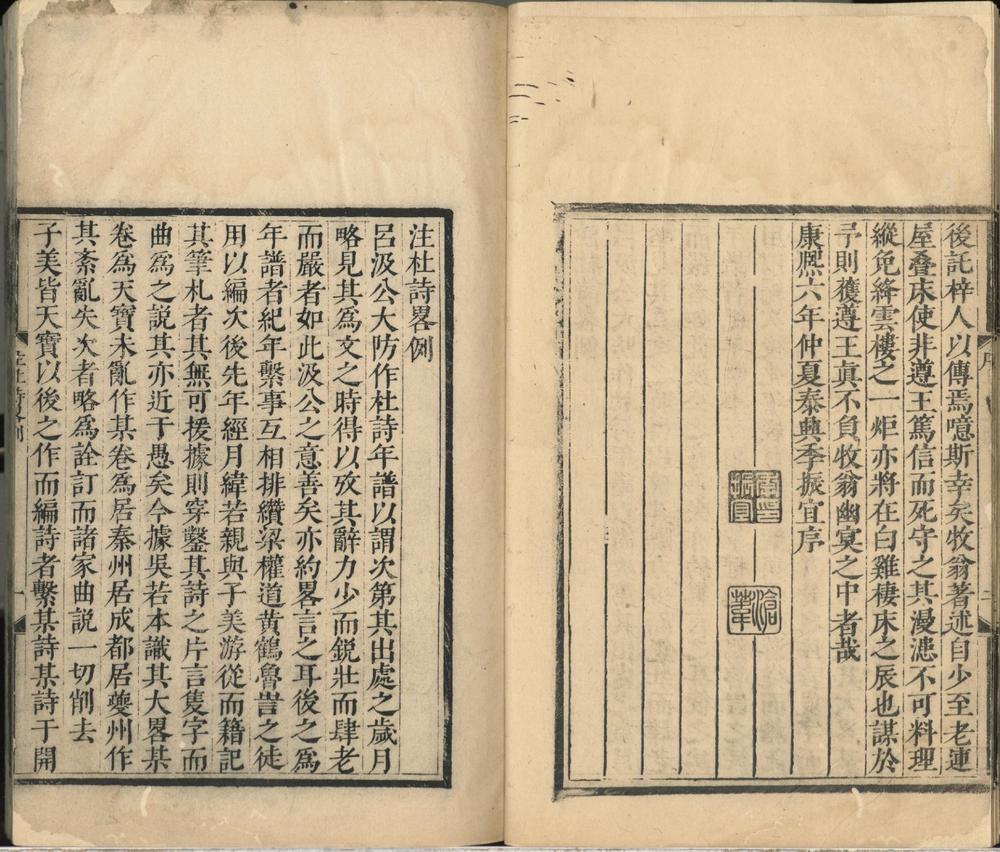 後託梓人以傳焉噫斯幸矣牧翁著述自少至老連
屋叠床使非遵王篤信而死守之其漫漶不可料理
縱免絳雲樓之一炬亦將在白雞棲床之辰也謀於
予則獲遵王眞不負牧翁幽冥之中者哉
康熈六年仲夏泰興季振宜序
序
二
季印振宜
滄葦
注杜詩畧例
呂汲公大防作杜詩年譜以謂次第其出處之歲月
略見其爲文之時得以攷其辭力少而鋭壯而肆老
而嚴者如此汲公之意善矣亦約畧言之耳後之爲
年譜者紀年繫事互相排纘梁權道黄鶴魯訔之徒
用以編次後先年經月緯若親與子美游從而籍記
其筆札者其無可援據則穿鑿其詩之片言隻字而
曲爲之說其亦近于愚矣今據吳若本識其大畧某
卷爲天寶未亂作某卷爲居秦州居成都居夔州作
其紊亂失次者略爲詮訂而諸家曲説一切削去
子美皆天寶以後之作而編詩者繫某詩某詩于開
注杜詩畧例
一